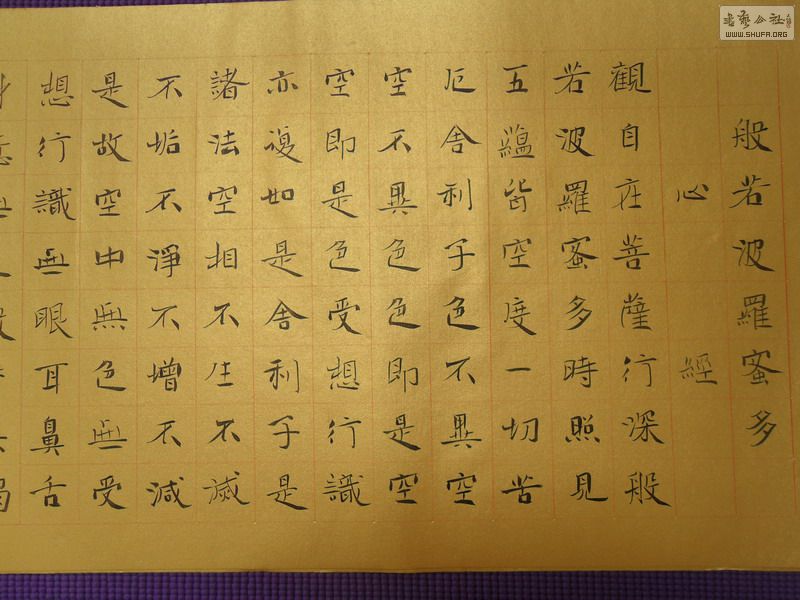 般若波羅蜜多
心經
觀自在菩薩行深般
若波羅蜜多時照見
五蘊皆空度一切苦
厄舍利子色不異空
空不異色色即是空
空即是色受想行識
亦復如是舍利子是
諸法空相不生不滅
不垢不淨不增不減
是故空中無色無受
想行識無眼耳鼻舌
WWW.SHUFA.ORG